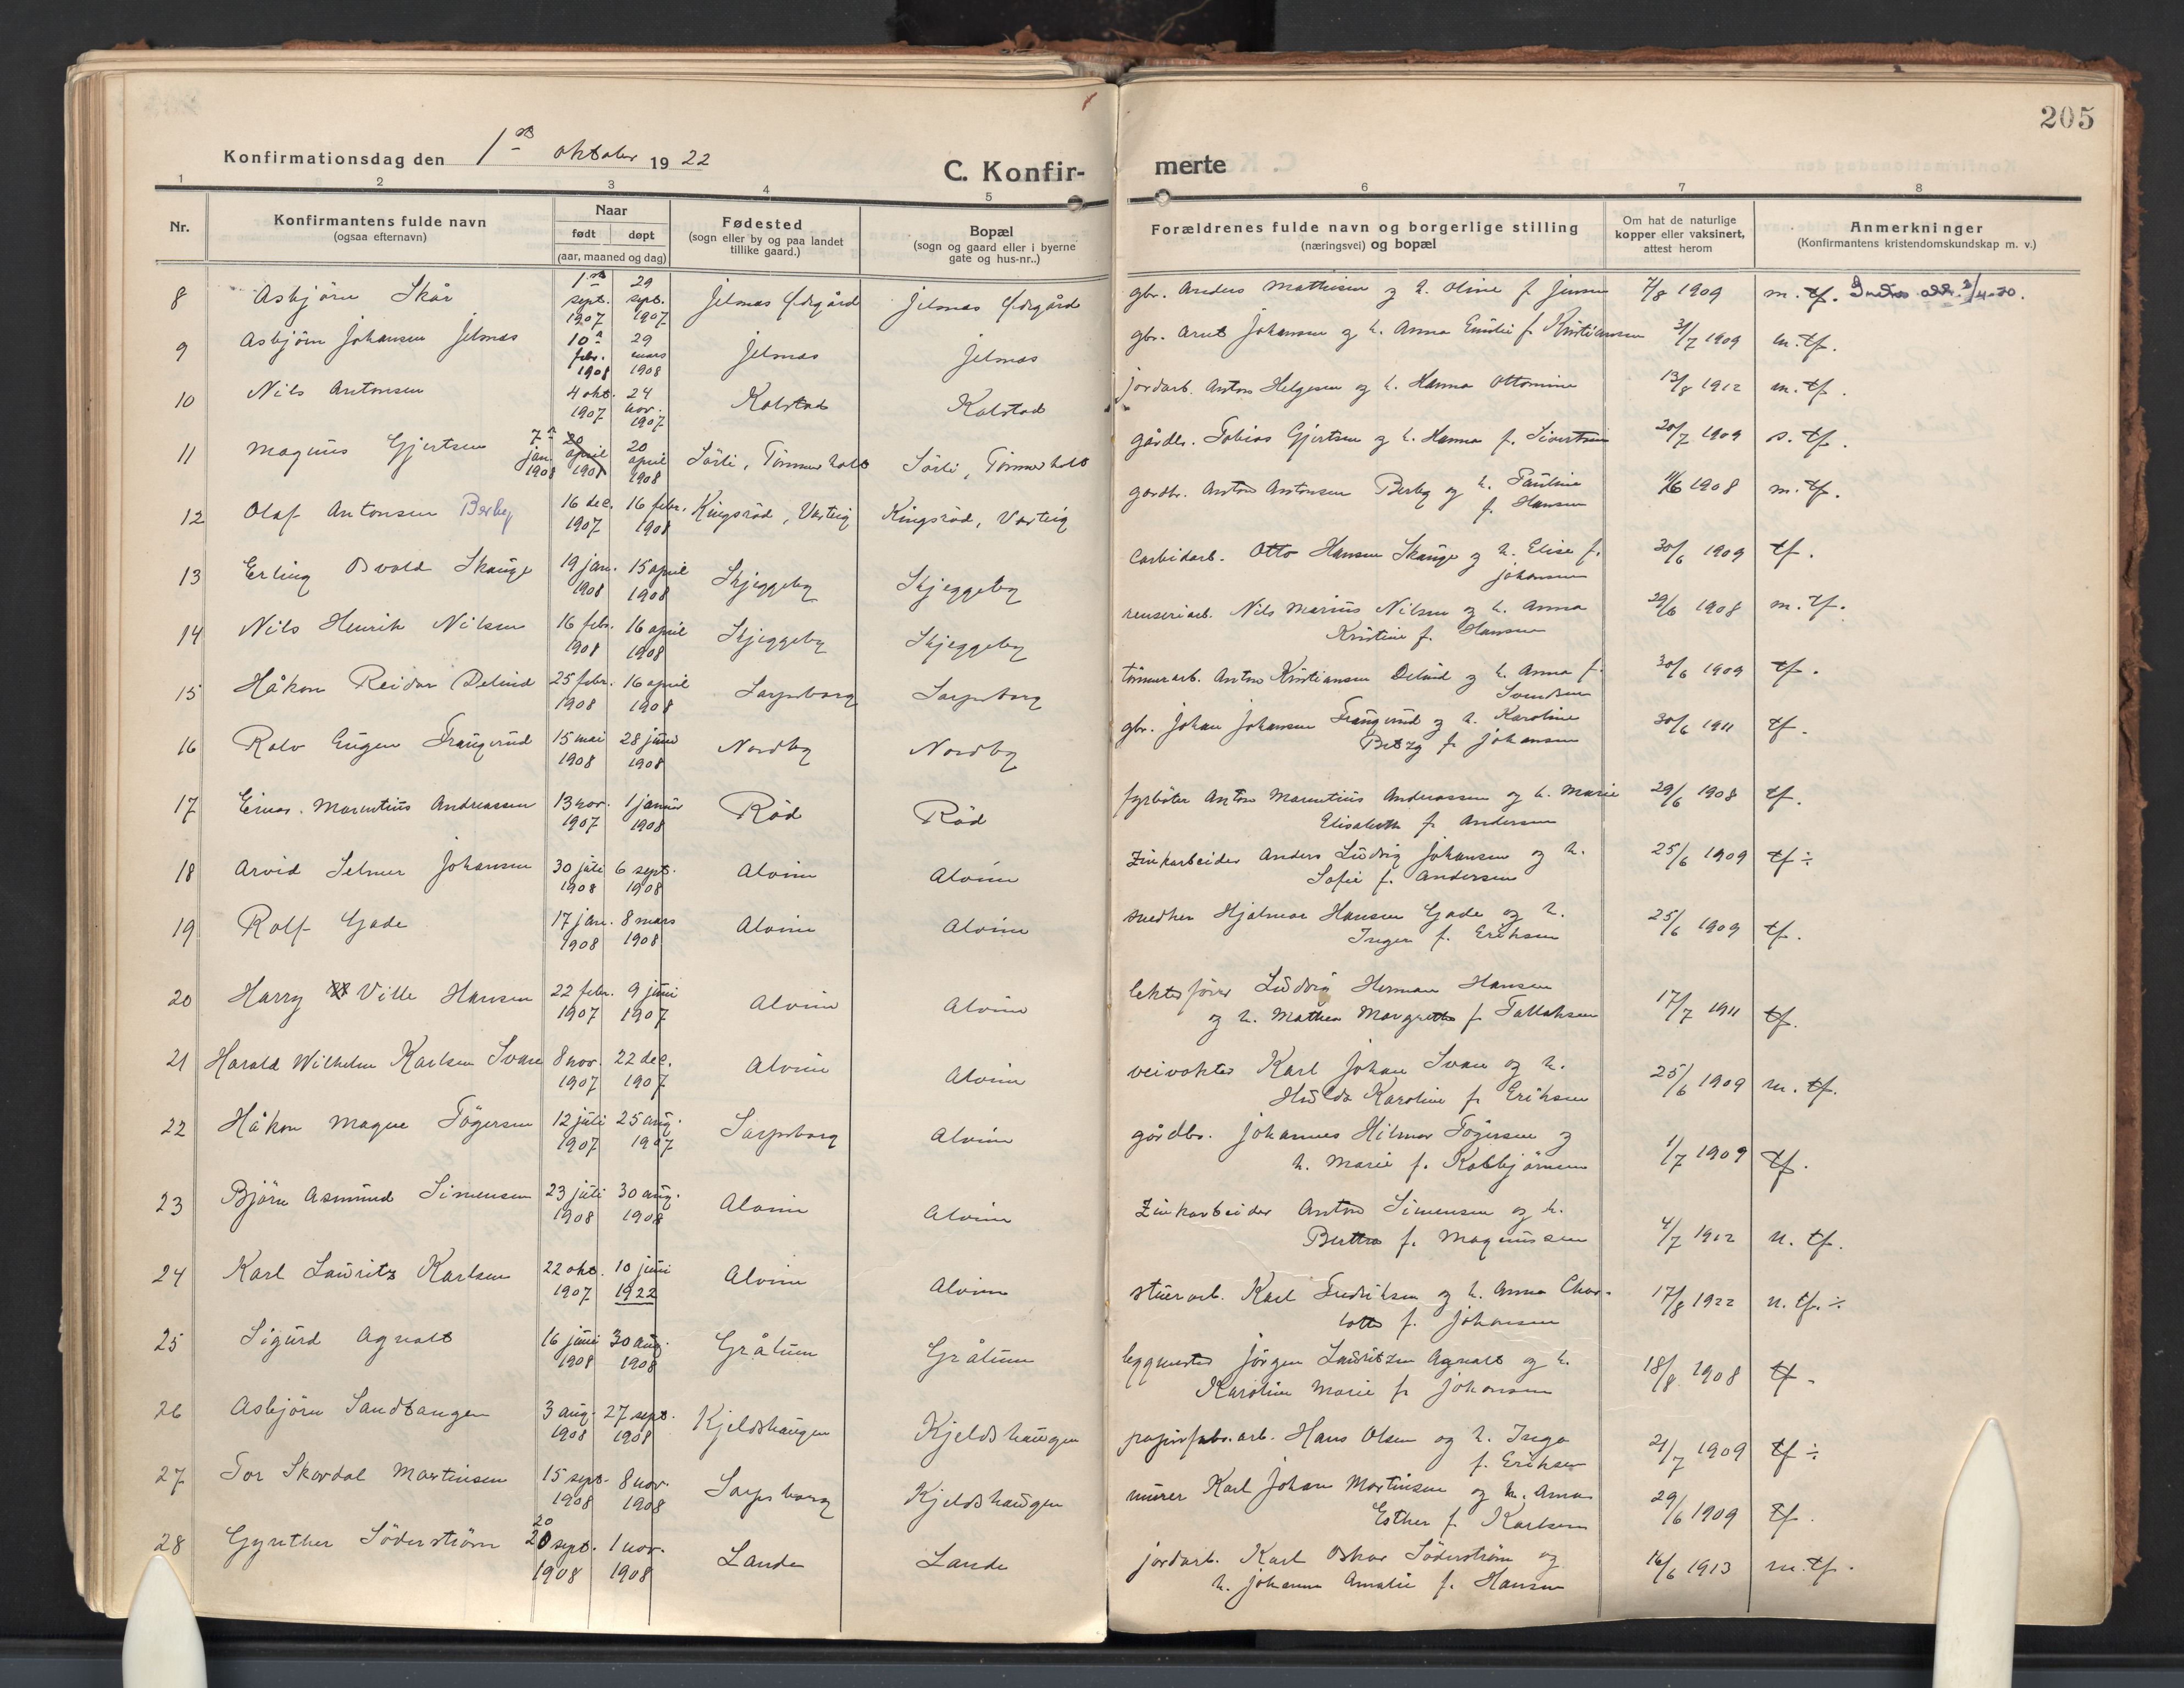 205
Konfirmationsdag den 1ste oktober 1922
C. Konfirmerte
1 2 3 4 5 6 7 8
Nr.
Konfirmantens fulde navn
(ogsaa efternavn)
Naar
født døpt
(aar, maaned og dag)
Fødested
(sogn eller by og paa landet
tillike gaard.)
Bopæl
(sogn og gaard eller i byerne
gate og hus-nr..)
Forældrenes fulde navn og borgerlige stilling
(næringsvei) og bopæl
Om hat de naturlige
kopper eller vaksinert,
attest herom
Anmerkninger
(Konfirmantens kristendomskundskap m. v.)
8 Asbjörn Skår 1ste sept. 1907 29 sept. 1907 Jelsnæs Ødegård Jelsnæs Ødegård gbr. Anders Mathisen og h. Oline f. Jensen 7/8 1909 m. tf.
9 Asbjörn Johansen Jelsnæs 10de febr. 1908 29 mars 1908 Jelsnæs Jelsnæs gbr. Arnt Johansen og h. Anna Emilie f. Kristiansen 31/7 1909 m. tf.
10 Nils Antonsen 4 okt. 1907 24 nov. 1907 Kolstad Kolstad jordarb. Anton Helgesen og h. Hanna Ottomine 13/8 1912 m. tf.
11 Magnus Gjertsen 7de jan. 1908 20 april 1908 20 april 1908 Sörli, Tömmerholt Sörli, Tömmerholt gårdbr. Tobias Gjertsen og h. Hanna f. Sivertsen 20/7 1909 s. tf.
12 Olaf Antonsen Berby 16 dec. 1907 16 febr. 1908 Kingsröd, Varteig Kingsröd, Varteig gardbr. Anton Antonsen Berby og h. Pauline f. Hansen 11/6 1908 m. tf.
13 Erling Osvald Skauge 19 jan. 1908 15 april 1908 Skjeggeby Skjeggeby carbidarb. Otto Hansen Skauge og h. Elise f. Johansen 30/6 1909 tf.
14 Nils Henrik Nilsen 16 febr. 1908 16 april 1908 Skjeggeby Skjeggeby renseriarb. Nils Marius Nilsen og h. Anna Kristine f. Hansen 29/6 1908 m. tf.
15 Håkon Reidar Delind 25 febr. 1908 16 april 1908 Sarpsborg Sarpsborg tömmerarb. Anton Kristiansen Delind og h. Anna f. Svendsen 30/6 1909 tf.
16 Rolv Eugen Traugerud 15 mai 1908 28 juni 1908 Nordby Nordby gbr. Johan Johansen Traugerud og h. Karoline Betzy f. Johansen 30/6 1911 tf.
17 Einar Marentius Andreassen 13 nov. 1907 1 januar 1908 Röd Röd fyrböter Anton Marentius Andreassen og h. Marie Elisabeth f. Andersen 29/6 1908 tf.
18 Arvid Selmer Johansen 30 juli 1908 6 sept. 1908 Alvim Alvim Zinkarbeider Anders Ludvig Johansen og h. Sofie f. Andersen 25/6 1909 tf ÷
19 Rolf Gade 17 jan. 1908 8 mars 1908 Alvim Alvim snedker Hjalmar Hansen Gade og h. Inger f. Eriksen 25/6 1909 tf.
20 Harry Ville Hansen 22 febr. 1907 9 juni 1907 Alvim Alvim lekterförer Ludvig Herman Hansen og h. Mathea Margrethe f. Tallaksen 17/7 1911 tf.
21 Harald Wilhelm Karlsen Svan 8 nov. 1907 22 dec. 1907 Alvim Alvim veivokter Karl Johan Svan og h. Hulda Karoline f. Eriksen 25/6 1909 m. tf.
22 Håkon Magne Tögersen 12 juli 1907 25 aug. 1907 Sarpsborg Alvim gårdbr. Johannes Hilmar Tögersen og h. Marie f. Kolbjörnsen 1/7 1909 tf.
23 Björn Asmund Simensen 23 juli 1908 30 aug. 1908 Alvim Alvim Zinkarbeider Anton Simensen og h. Berthea f. Magnussen 4/7 1912 n. tf.
24 Karl Lauritz Karlsen 22 okt. 1907 10 juni 1922 Alvim Alvim stuerarb. Karl Fredriksen og h. Anna Charlotte f. Johansen 17/8 1922 n. tf. ÷
25 Sigurd Agnalt 16 juni 1908 30 aug. 1908 Grålum Grålum byggmester Jörgen Lauritzen Agnalt og h. Karoline Marie f. Johansen 18/8 1908 tf.
26 Asbjörn Sandtangen 3 aug. 1908 27 sept. 1908 Kjeldshaugen Kjeldshaugen papirfabr.arb. Hans Olsen og h. Inga f. Eriksen 21/7 1909 tf ÷
27 Tor Skardal Martinsen 15 sept. 1908 8 nov. 1908 Sarpsborg Kjeldshaugen murer Karl Johan Martinsen og h. Anna Esther f. Karlsen 29/6 1909 tf.
28 Gynther Söderström 20 sept. 1908 1 nov. 1908 Lande Lande jordarb. Karl Oskar Söderström og h. Johanne Amalie f. Hansen 16/6 1913 m. tf.